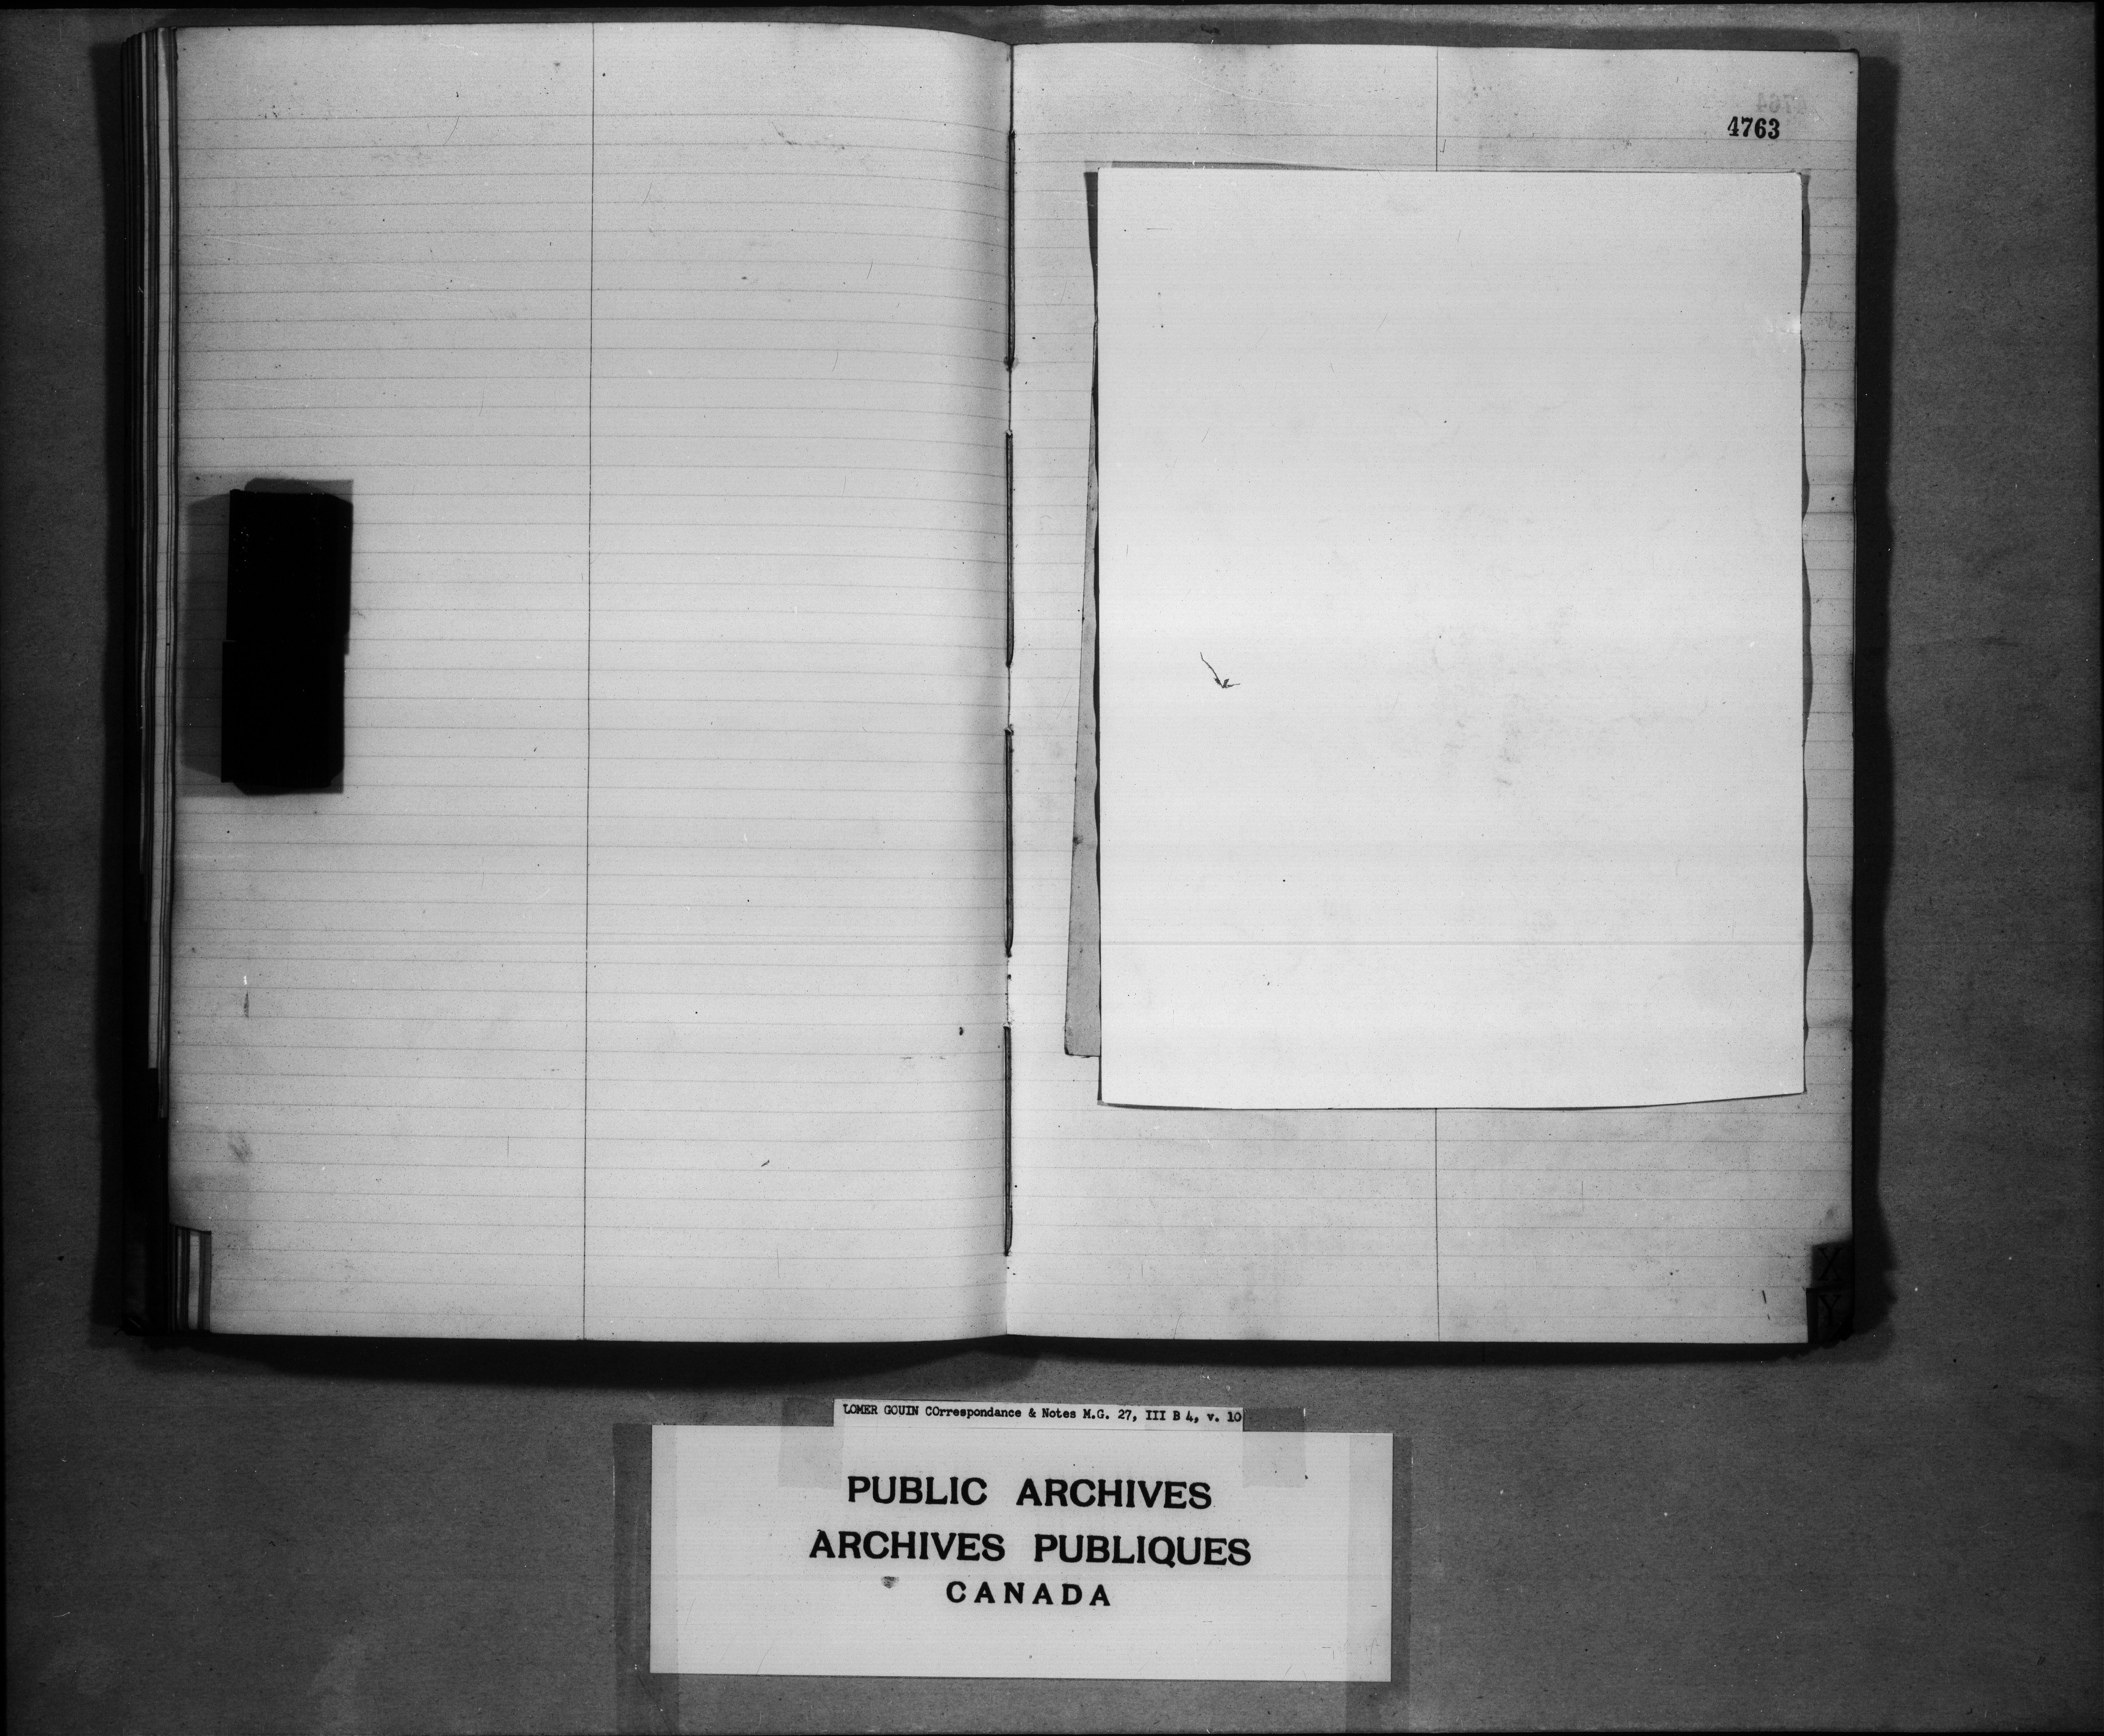 4763
X
Y
LOMER GOUIN COrrespondance & Notes M.G. 27, III B 4, v. 10
PUBLIC ARCHIVES
ARCHIVES PUBLIQUES
CANADA